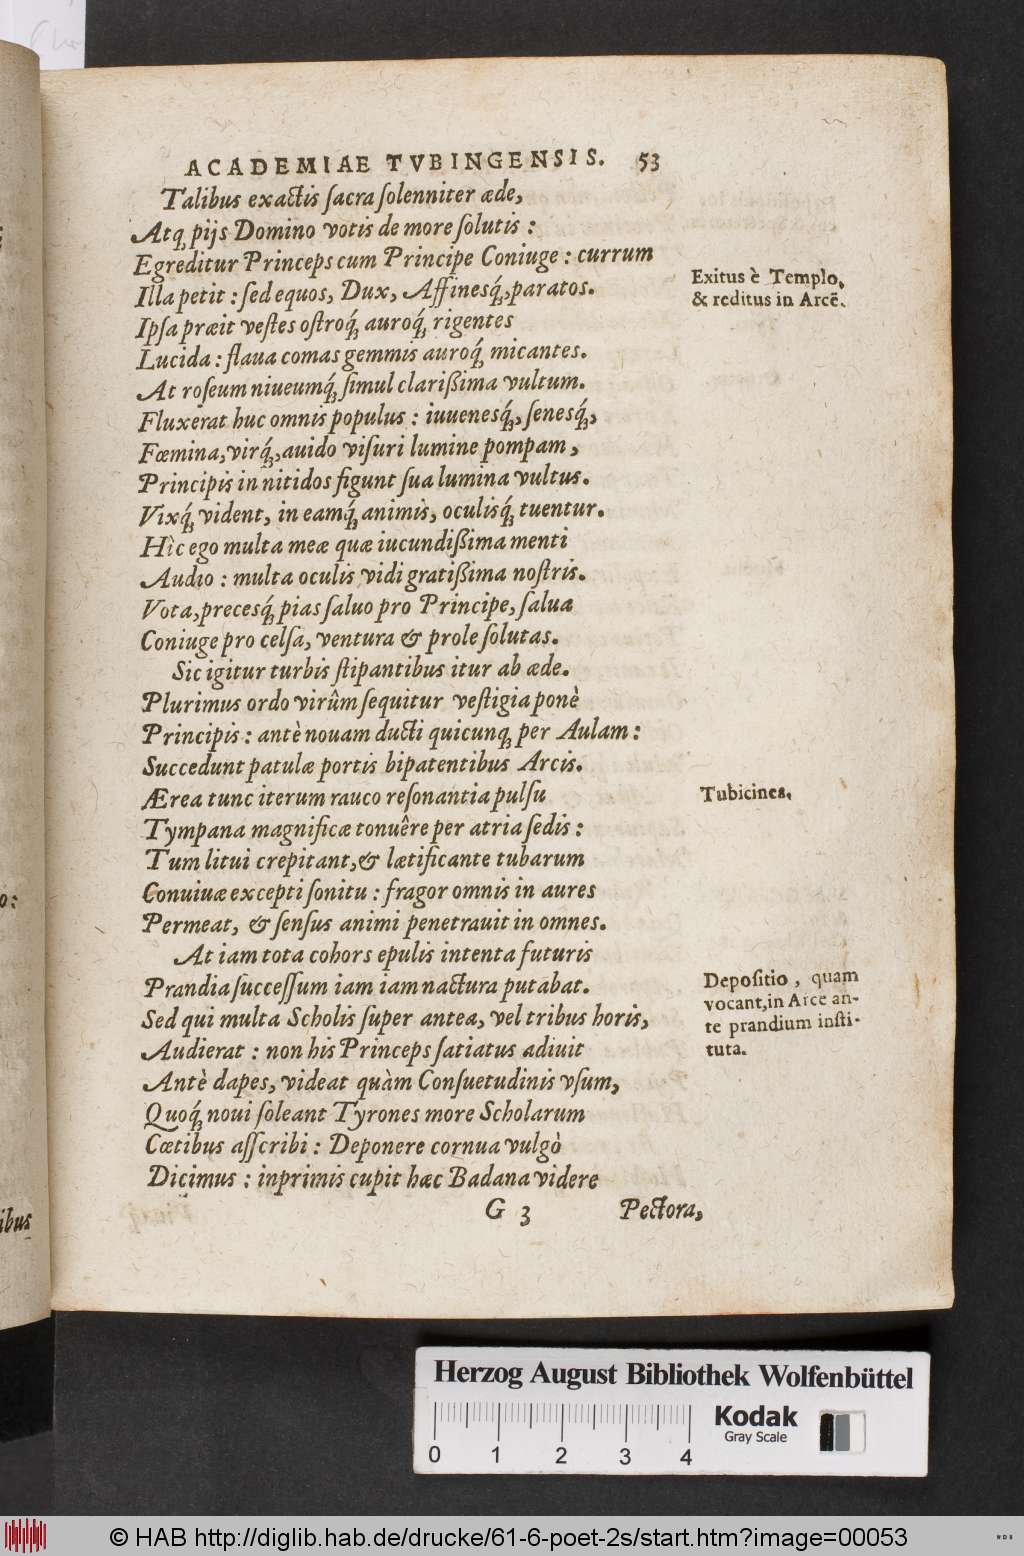 ACADEMIAE TVBINGENSIS. 53
Talibus exactis ſacra ſolenniter æde,
Atq́; pijs Domino votis de more ſolutis :
Egreditur Princeps cum Principe Coniuge : currum
Exitus è Templo,
Illa petit : ſed equos, Dux, Affinesq́;, paratos.
& reditus in Arcē.
Ipſa præit veſtes oſtroq́; auroq́; rigentes
Lucida : flaua comas gemmis auroq́; micantes.
At roſeum niueumq́; ſimul clarißima vultum.
Fluxerat huc omnis populus : iuuenesq́;, ſenesq́;,
Fœmina, virq́;, auido viſuri lumine pompam,
Principis in nitidos figunt ſua lumina vultus.
Vixq́; vident, in eamq́; animis, oculisq́; tuentur.
Hìc ego multa meæ quæ iucundißima menti
Audio : multa oculis vidi gratißima noſtris.
Vota, precesq́; pias ſaluo pro Principe, ſalua
Coniuge pro celſa, ventura & prole ſolutas.
Sic igitur turbis ſtipantibus itur ab æde.
Plurimus ordo virûm ſequitur veſtigia ponè
Principis : antè nouam ducti quicunq; per Aulam :
Succedunt patulæ portis bipatentibus Arcis.
Ærea tunc iterum rauco reſonantia pulſu
Tubicines.
Tympana magnificæ tonuêre per atria ſedis :
Tum litui crepitant, & lætificante tubarum
Conuiuæ excepti ſonitu : fragor omnis in aures
Permeat, & ſenſus animi penetrauit in omnes.
At iam tota cohors epulis intenta futuris
Prandia ſucceſſum iam iam nactura putabat.
Sed qui multa Scholis ſuper antea, vel tribus horis,
Audierat : non his Princeps ſatiatus adiuit
Antè dapes, videat quàm Conſuetudinis vſum,
Quoq́; noui ſoleant Tyrones more Scholarum
Cœtibus aſſcribi : Deponere cornua vulgò
Dicimus : inprimis cupit hæc Badana videre
Depoſitio, quam
vocant, in Arce an-
te prandium inſti-
tuta.
G 3 Pectora,
o:
ibus
Herzog August Bibliothek Wolfenbüttel
0 1 2 3 4
Kodak
Gray Scale
© HAB http://diglib.hab.de/drucke/61-6-poet-2s/start.htm?image=00053